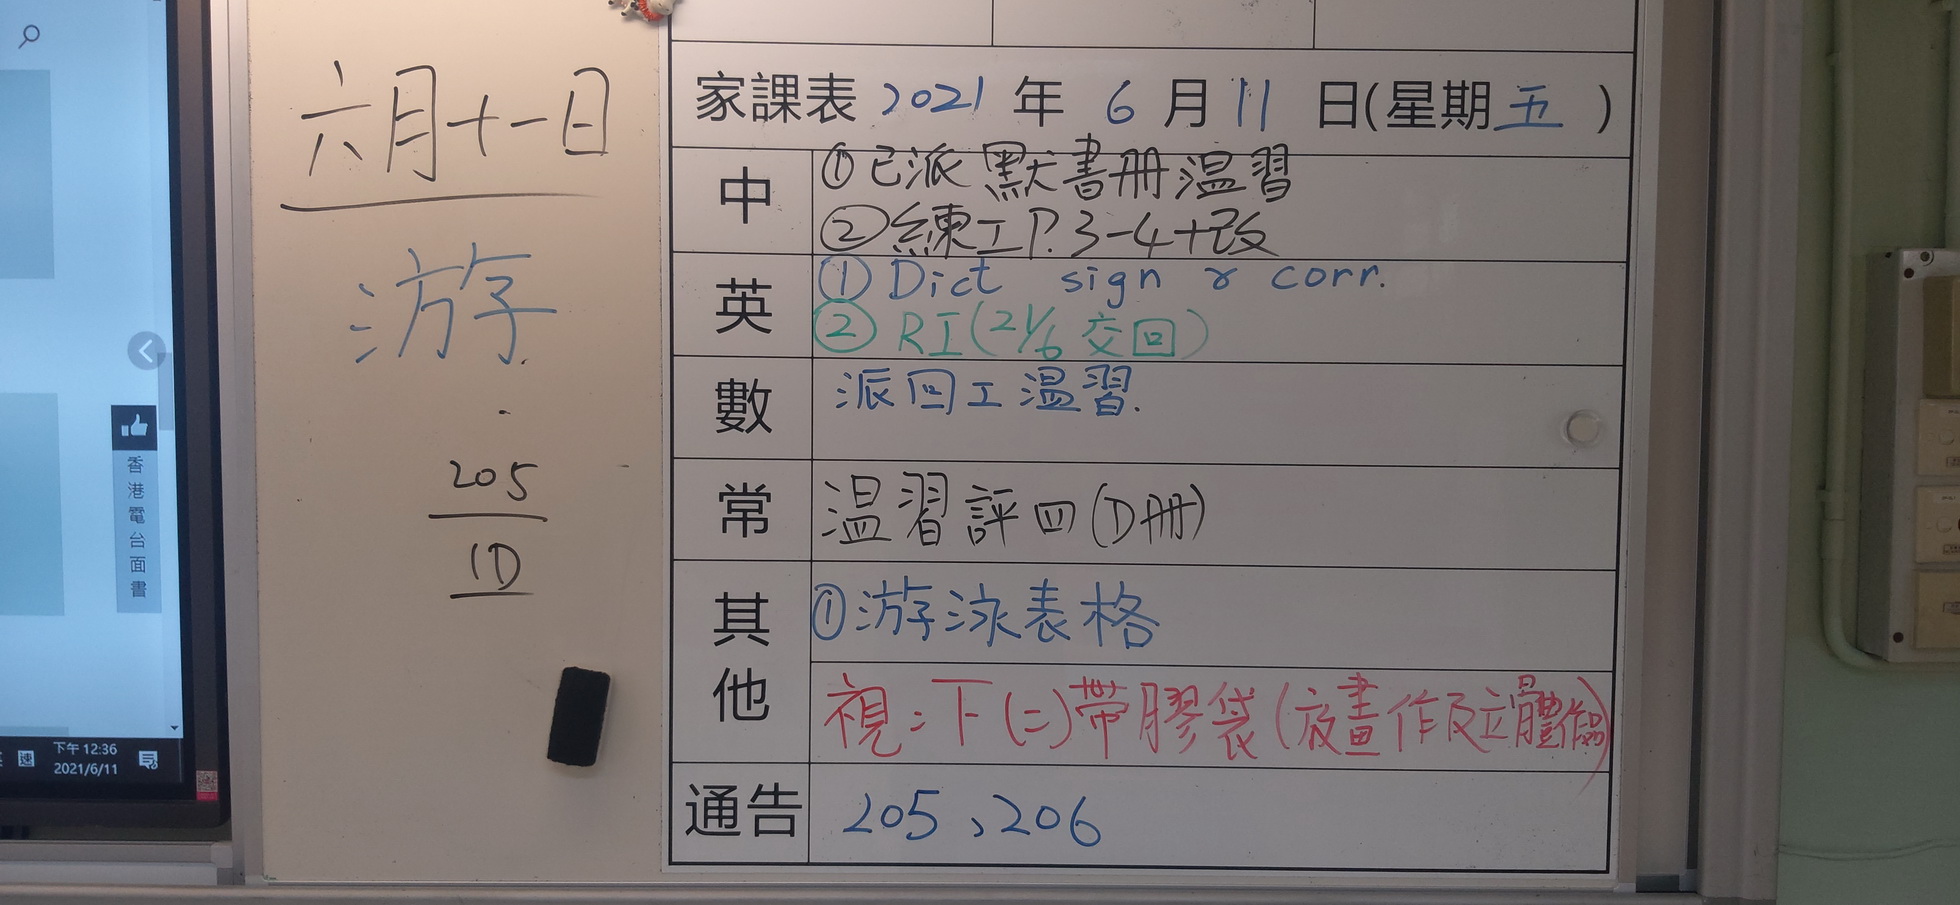 六月十一日
游
205
1D
香港電台面書
下午 12:36
2021/6/11
家課表 2021 年 6 月 11 日(星期五)
中
①已派默書冊温習
②練工P.3-4+改
英
① Dict sign & corr.
② RI(21/6 交回)
數
派回工温習.
常
温習評四(D冊)
其他
①游泳表格
視:下(二)帶膠袋(放畫作及立體作品)
通告
205、206